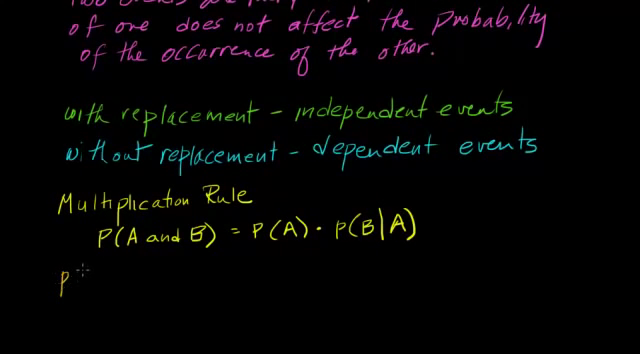 of one does not affect the probability
of the occurrence of the other.
with replacement - independent events
without replacement - dependent events
Multiplication Rule
P(A and B) = P(A) · P(B|A)
P